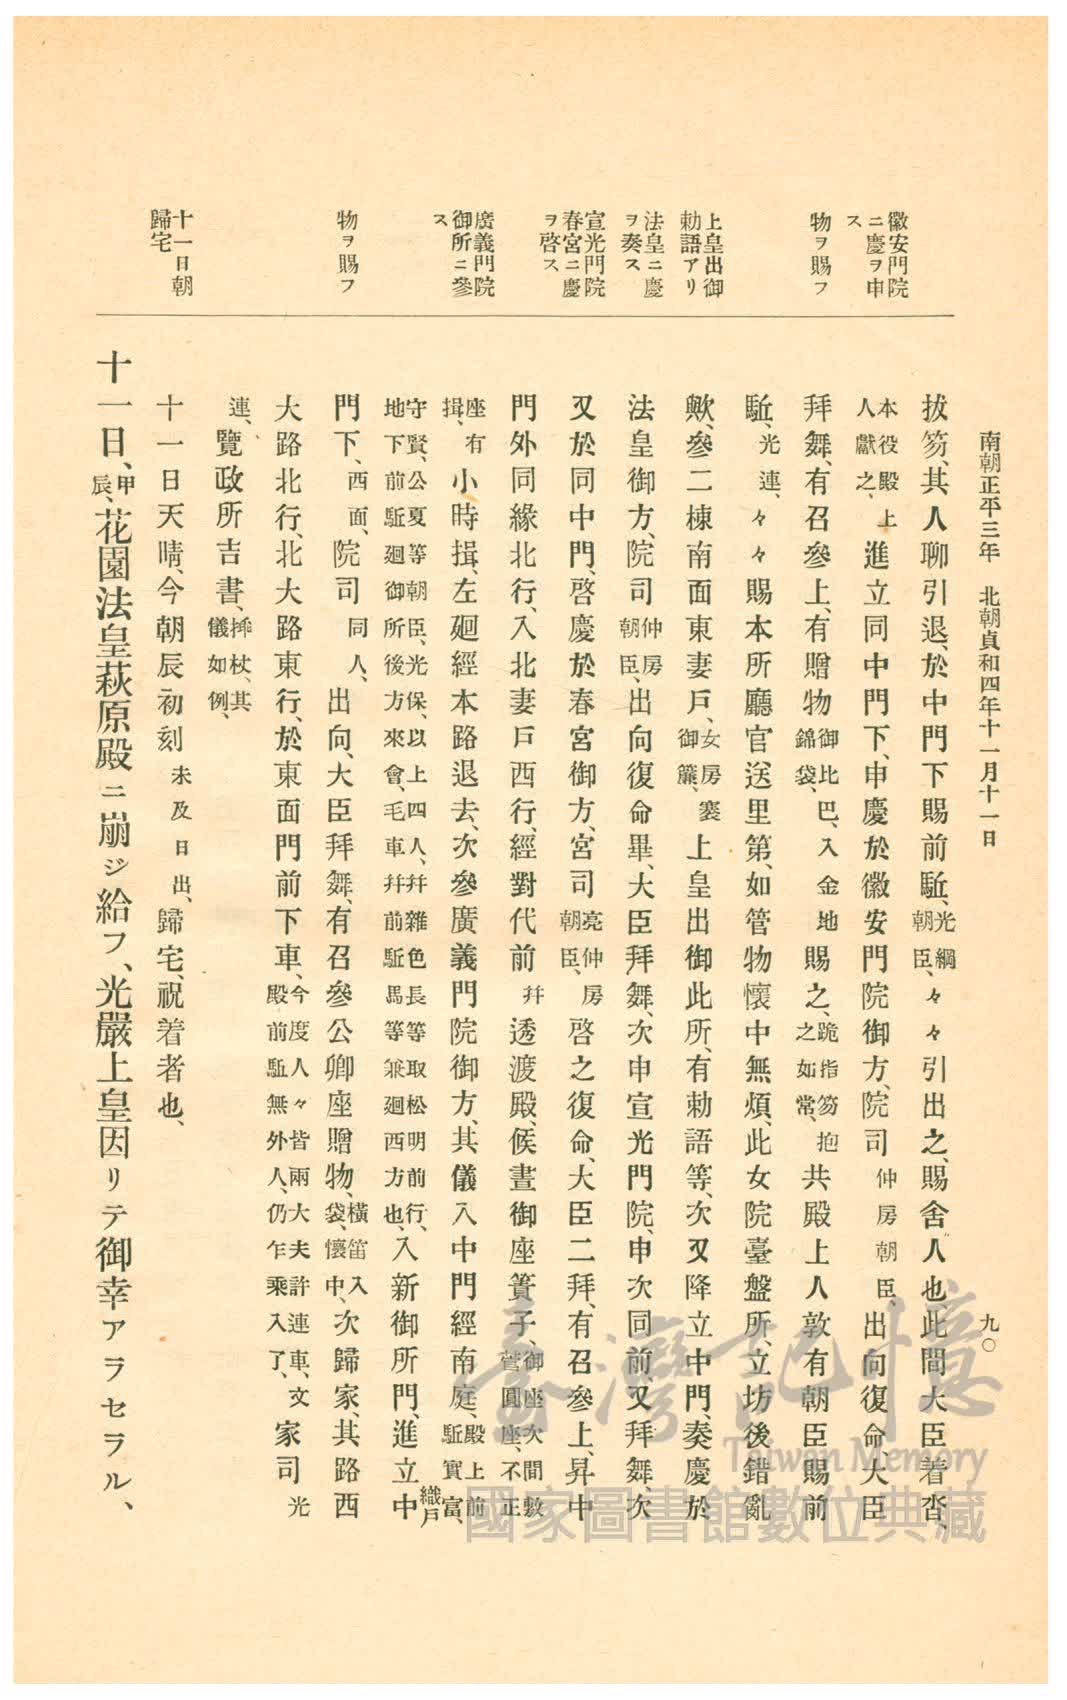 南朝正平三年　北朝貞和四年十一月十一日
九〇
徽安門院ニ慶ヲ申ス
物ヲ賜フ
上皇出御勅語アリ
法皇ニ慶ヲ奏ス
宣光門院春宮ニ慶ヲ啓ス
廣義門院御所ニ參ス
物ヲ賜フ
十一日朝歸宅
拔笏、其人聊引退、於中門下賜前駈、光綱朝臣、々々引出之、賜舍人也、此間大臣着沓、
本役殿上人獻之、進立同中門下、申慶於徽安門院御方、院司仲房朝臣、出向復命、大臣
拜舞、有召參上、有贈物御比巴、入金地錦袋、賜之、跪指笏抱之如常、共殿上人敦有朝臣賜前
駈、光連、々々賜本所廳官送里第、如管物懷中無煩、此女院臺盤所、立坊後錯亂
歟、參二棟南面東妻戶、女房褰御簾、上皇出御此所、有勅語等、次又降立中門、奏慶於
法皇御方、院司仲房朝臣、出向復命畢、大臣拜舞、次申宣光門院、申次同前、又拜舞、次
又於同中門、啓慶於春宮御方、宮司亮仲房朝臣、啓之復命、大臣二拜、有召參上、昇中
門外同緣北行、入北妻戶西行、經對代前幷透渡殿、候晝御座簀子、御座次間敷菅圓座、不正
座有揖、小時揖、左廻經本路退去、次參廣義門院御方、其儀入中門經南庭、殿上前駈實富、
織戶
守賢、公夏等朝臣、光保、以上四人、幷雜色長等取松明前行、地下前駈廻御所後方來會、毛車幷前駈馬等兼廻西方也、入新御所門、進立中
門下、西面、院司同人、出向、大臣拜舞、有召參公卿座贈物、橫笛入袋、懷中、次歸家、其路西
大路北行、北大路東行、於東面門前下車、今度人々皆兩大夫許連車、文殿前駈無外人、仍乍乘入了、家司光
連、覽政所吉書、揷杖、其儀如例、
十一日天晴、今朝辰初刻未及日出、歸宅、祝着者也、
十一日、甲辰、花園法皇萩原殿ニ崩ジ給フ、光嚴上皇因リテ御幸アラセラル、
臺灣記憶
Taiwan Memory
國家圖書館數位典藏